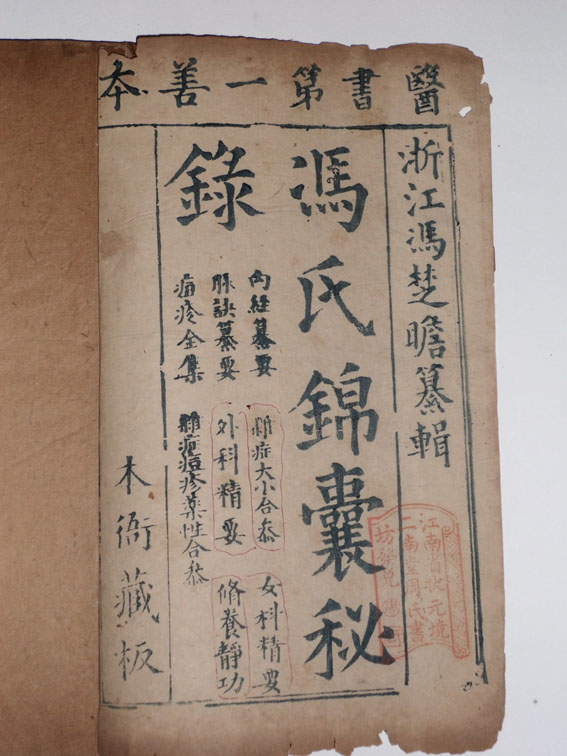 醫書第一善本
浙江馮楚瞻纂輯
馮氏錦囊秘
錄
內經纂要
雜症大小合叅
女科精要
脉訣纂要
外科精要
脩養靜功
痘疹全集
雜症痘疹藥性合叅
本衙藏板
江南省狀元境
二南堂周氏書
坊